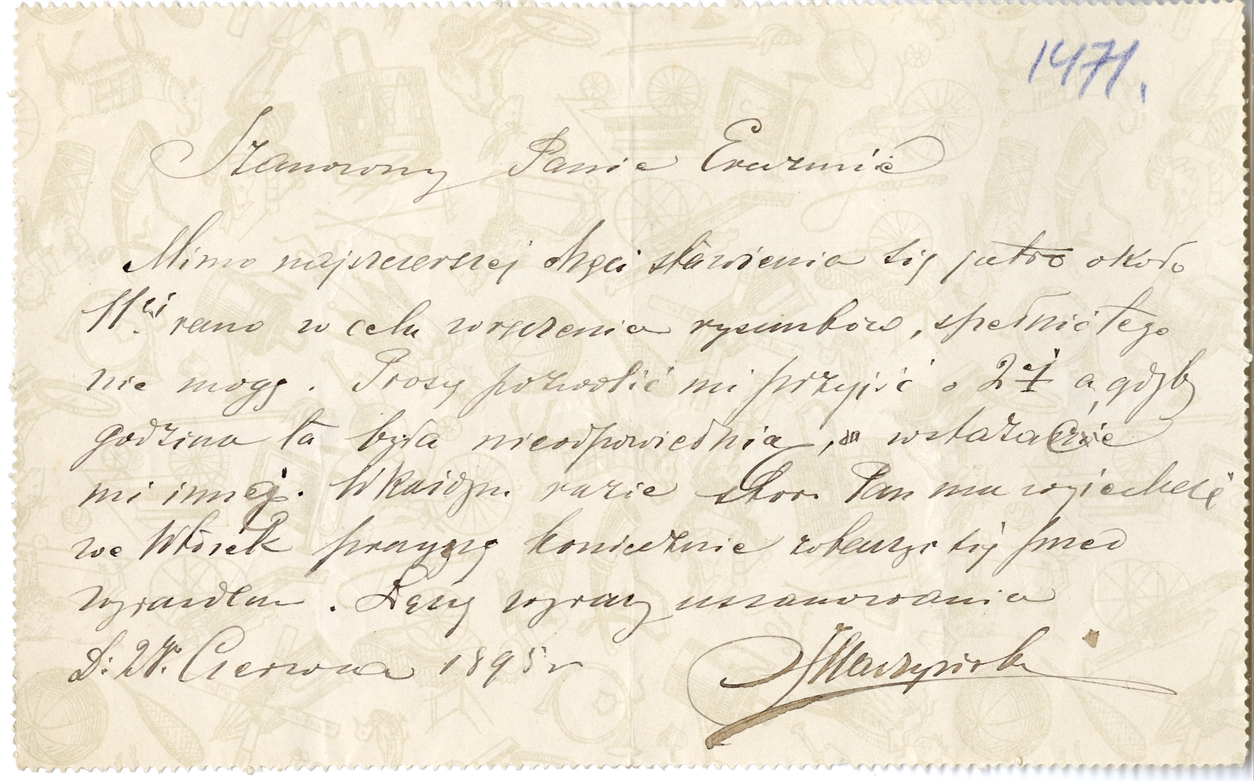 1471.
Szanowny Panie Erazmie
Mimo najszczerszej chęci stawienia się jutro około
11ej rano w celu wręczenia rysunków, spełnić tego
nie mogę. Proszę pozwolić mi przyjść o 2ej a gdyby
godzina ta była nieodpowiednia, wskazać
mi innej. W każdym razie Pan ma wyjechać
we Wtorek pragnę koniecznie zobaczyć się przed
wyjazdem. Łączę wyrazy uszanowania
D: Czerwca 1895 r